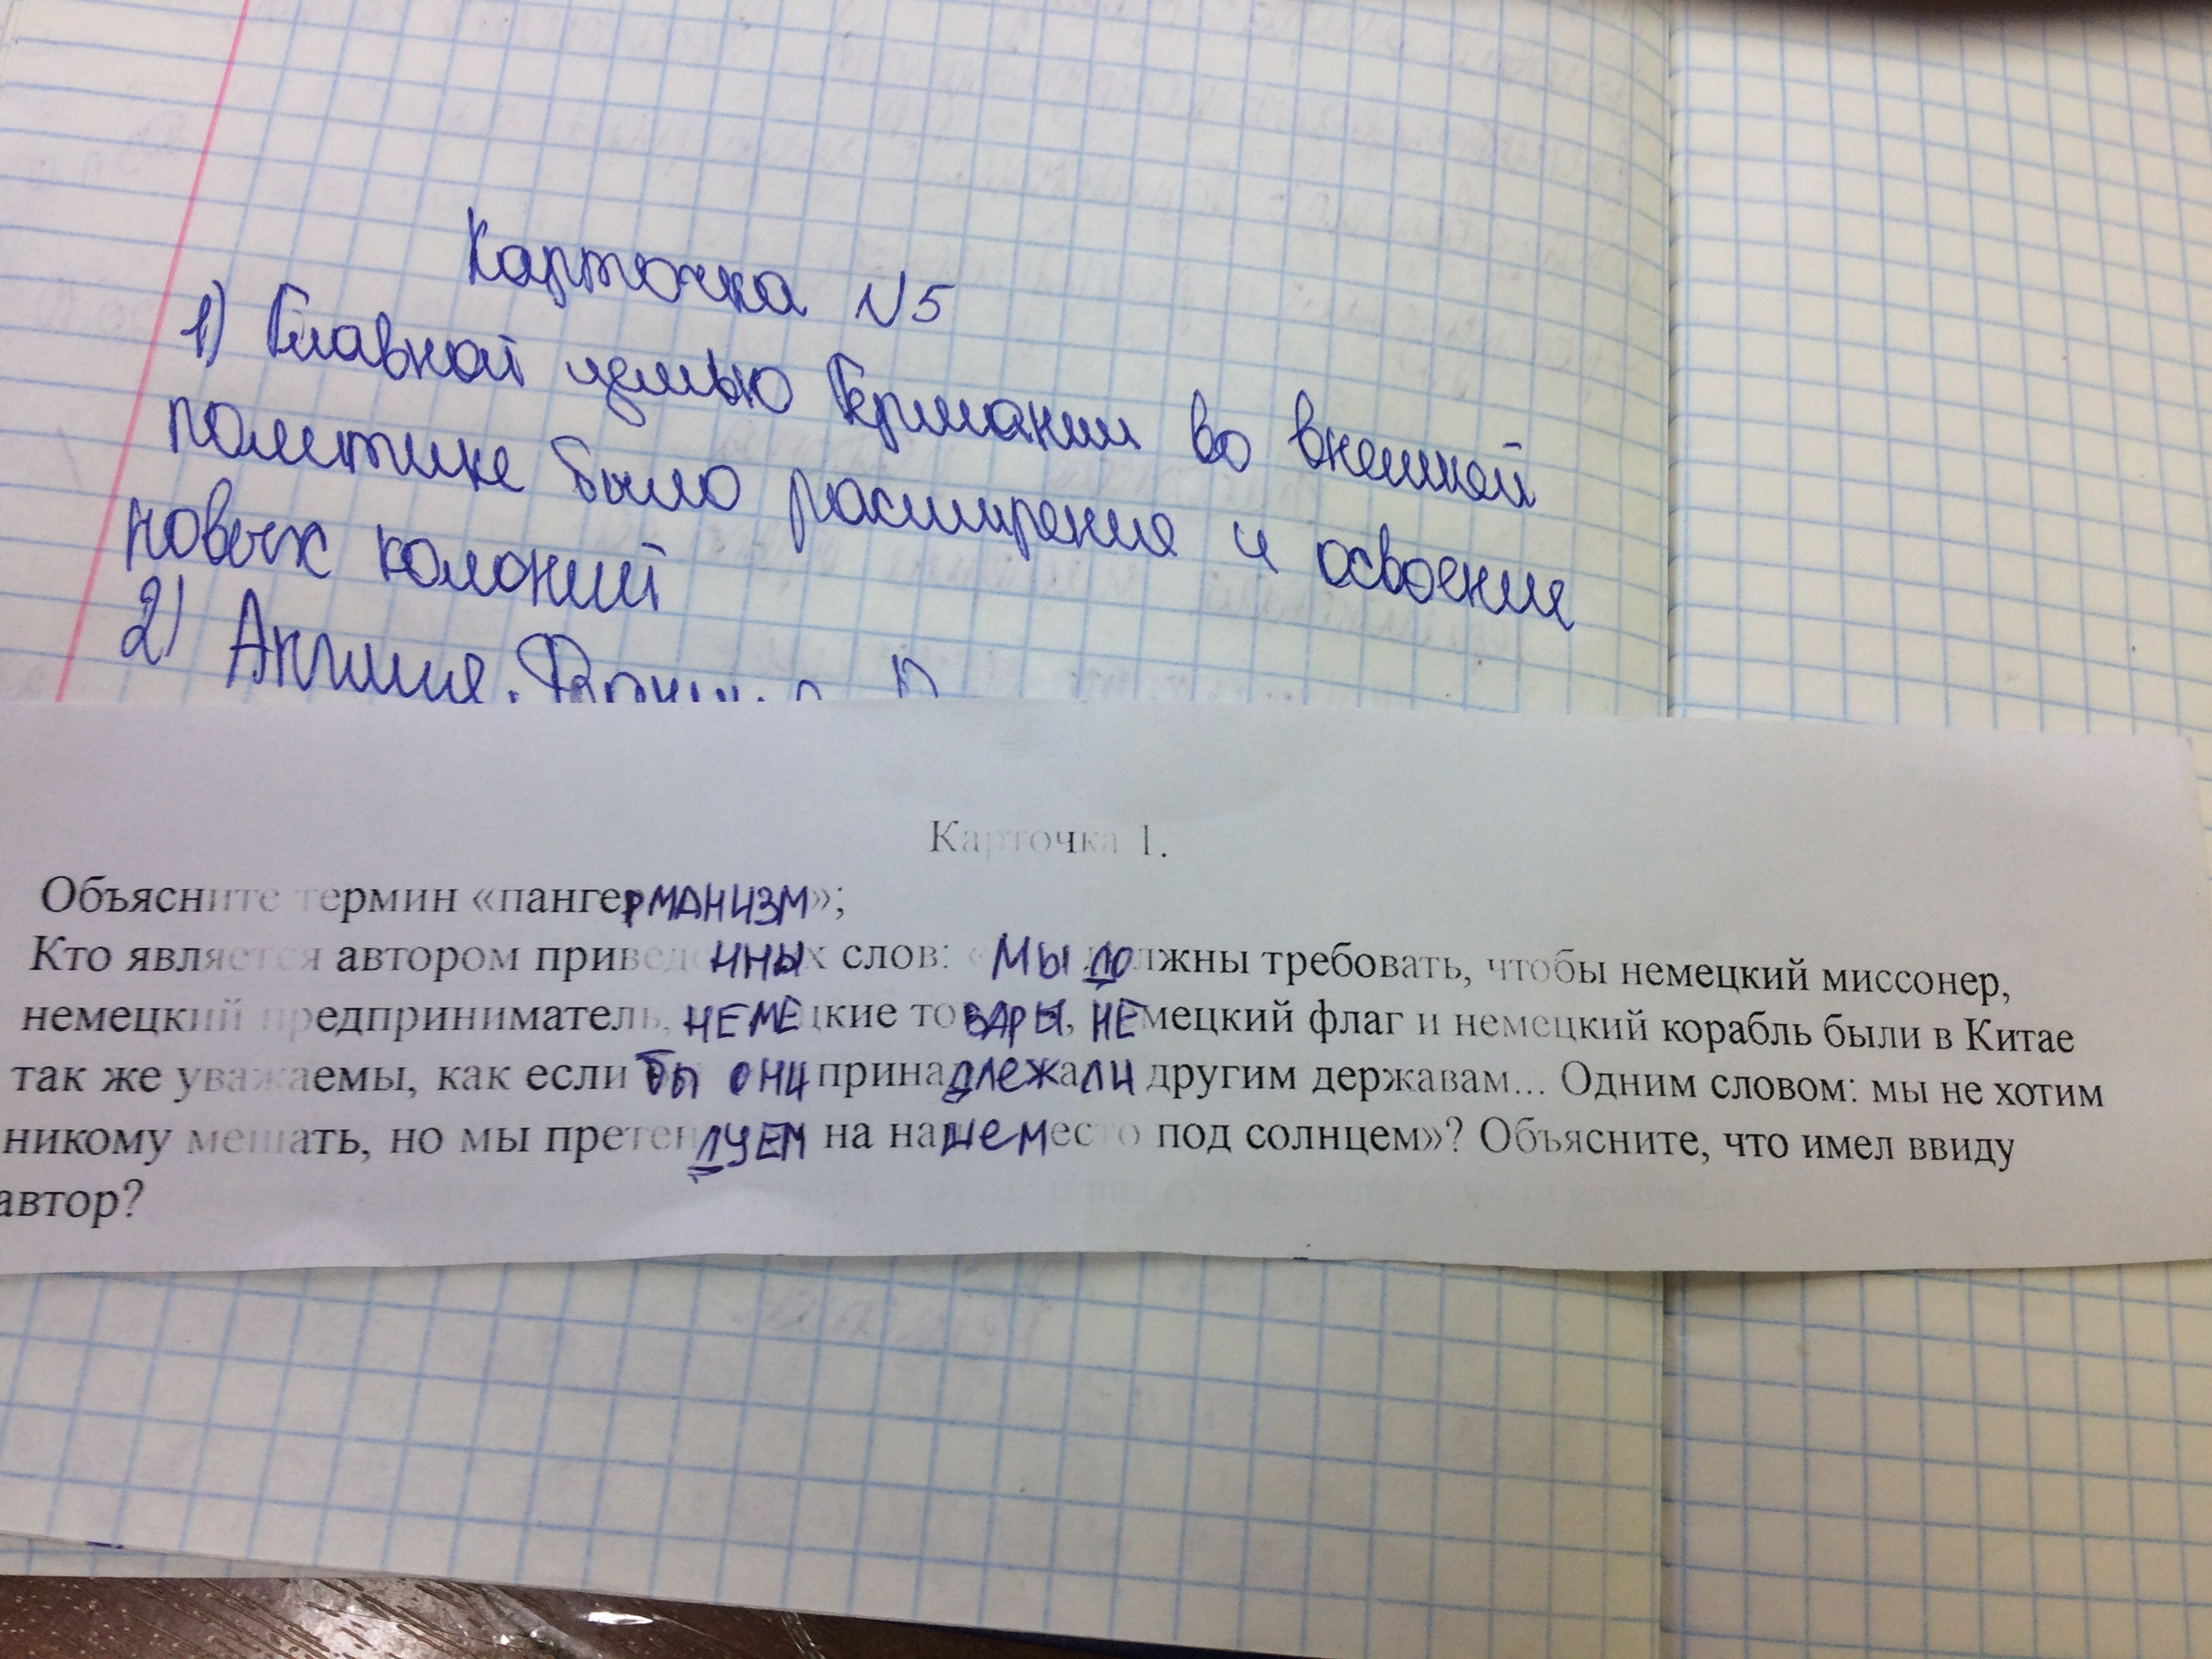 Карточка №5
1) Главной целью Германии во внешней
политике было расширение и освоение
новых колоний
2) Англия,
Карточка 1.
Объясните термин «пангерманизм»;
Кто является автором приведенных слов: «Мы должны требовать, чтобы немецкий миссонер,
немецкий предприниматель, немецкие товары, немецкий флаг и немецкий корабль были в Китае
так же уважаемы, как если бы они принадлежали другим державам... Одним словом: мы не хотим
никому мешать, но мы претендуем на наше место под солнцем»? Объясните, что имел ввиду
автор?